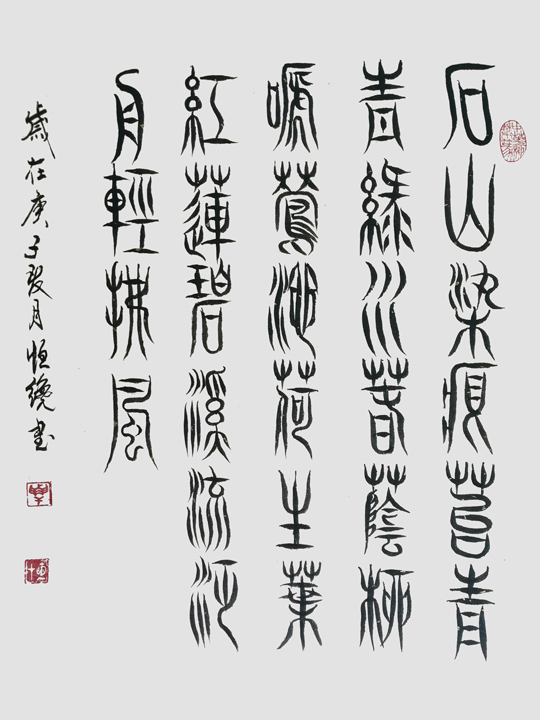 石山染痕苔青
青綠川春蔭柳
嗁鶯池荷生葉
紅蓮碧溪流泛
舟輕拂風
歲在庚子 月恒 書